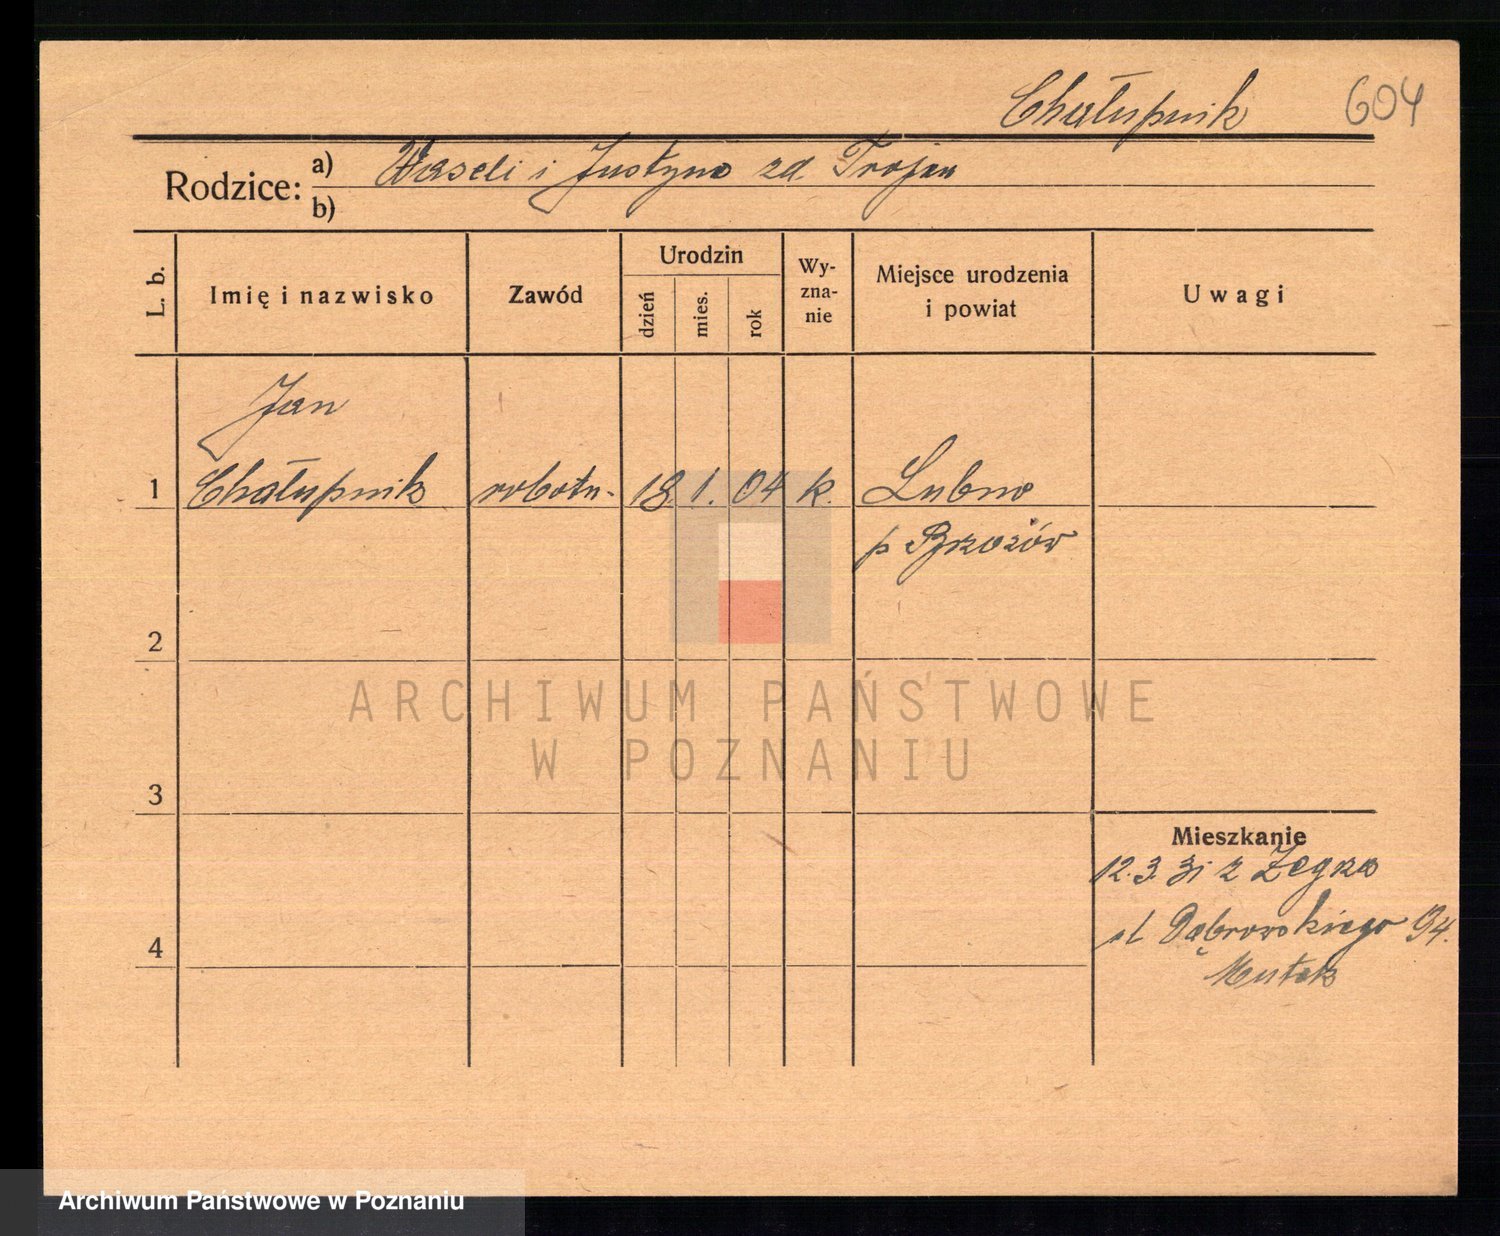 Chałupnik 604
Rodzice: a) Waseli i Justyna zd. Trojan
b)
L. b. Imię i nazwisko Zawód Urodzin dzień mies. rok Wy-zna-nie Miejsce urodzenia i powiat Uwagi
Jan
1 Chałupnik robotn. 18. 1. 04 k. Lubno
p Brzozów
2
ARCHIWUM PAŃSTWOWE
W POZNANIU
3
Mieszkanie
12.3.31 z
4 ul Dąbrowskiego 94.
Archiwum Państwowe w Poznaniu